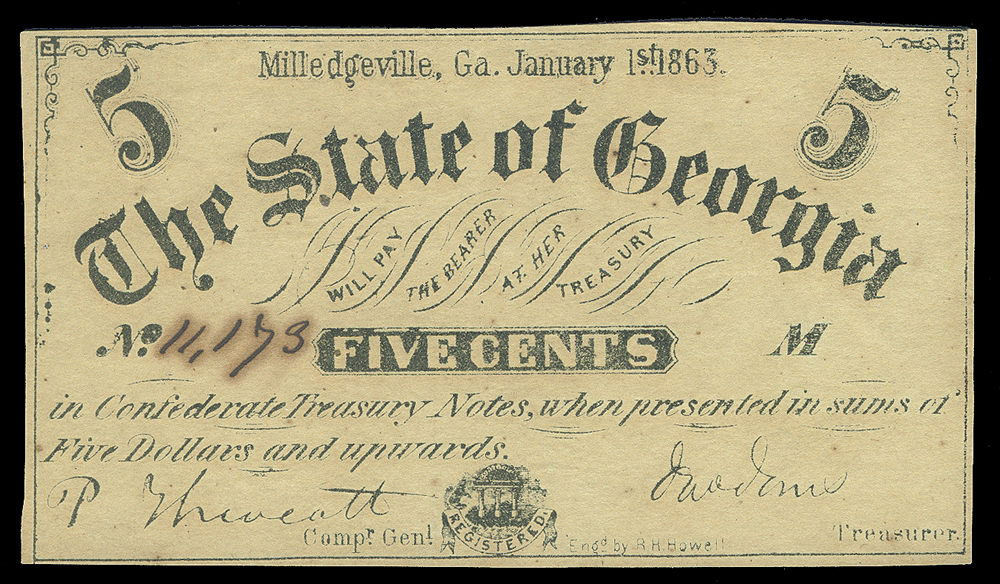 Milledgeville, Ga. January 1st 1863.
5 5
The State of Georgia
WILL PAY THE BEARER AT HER TREASURY
No. 11,173 FIVE CENTS M
in Confederate Treasury Notes, when presented in sums of
Five Dollars and upwards.
P Thweatt Jno Jones
Compr. Genl. REGISTERED. Engd. by R.H. Howell Treasurer.